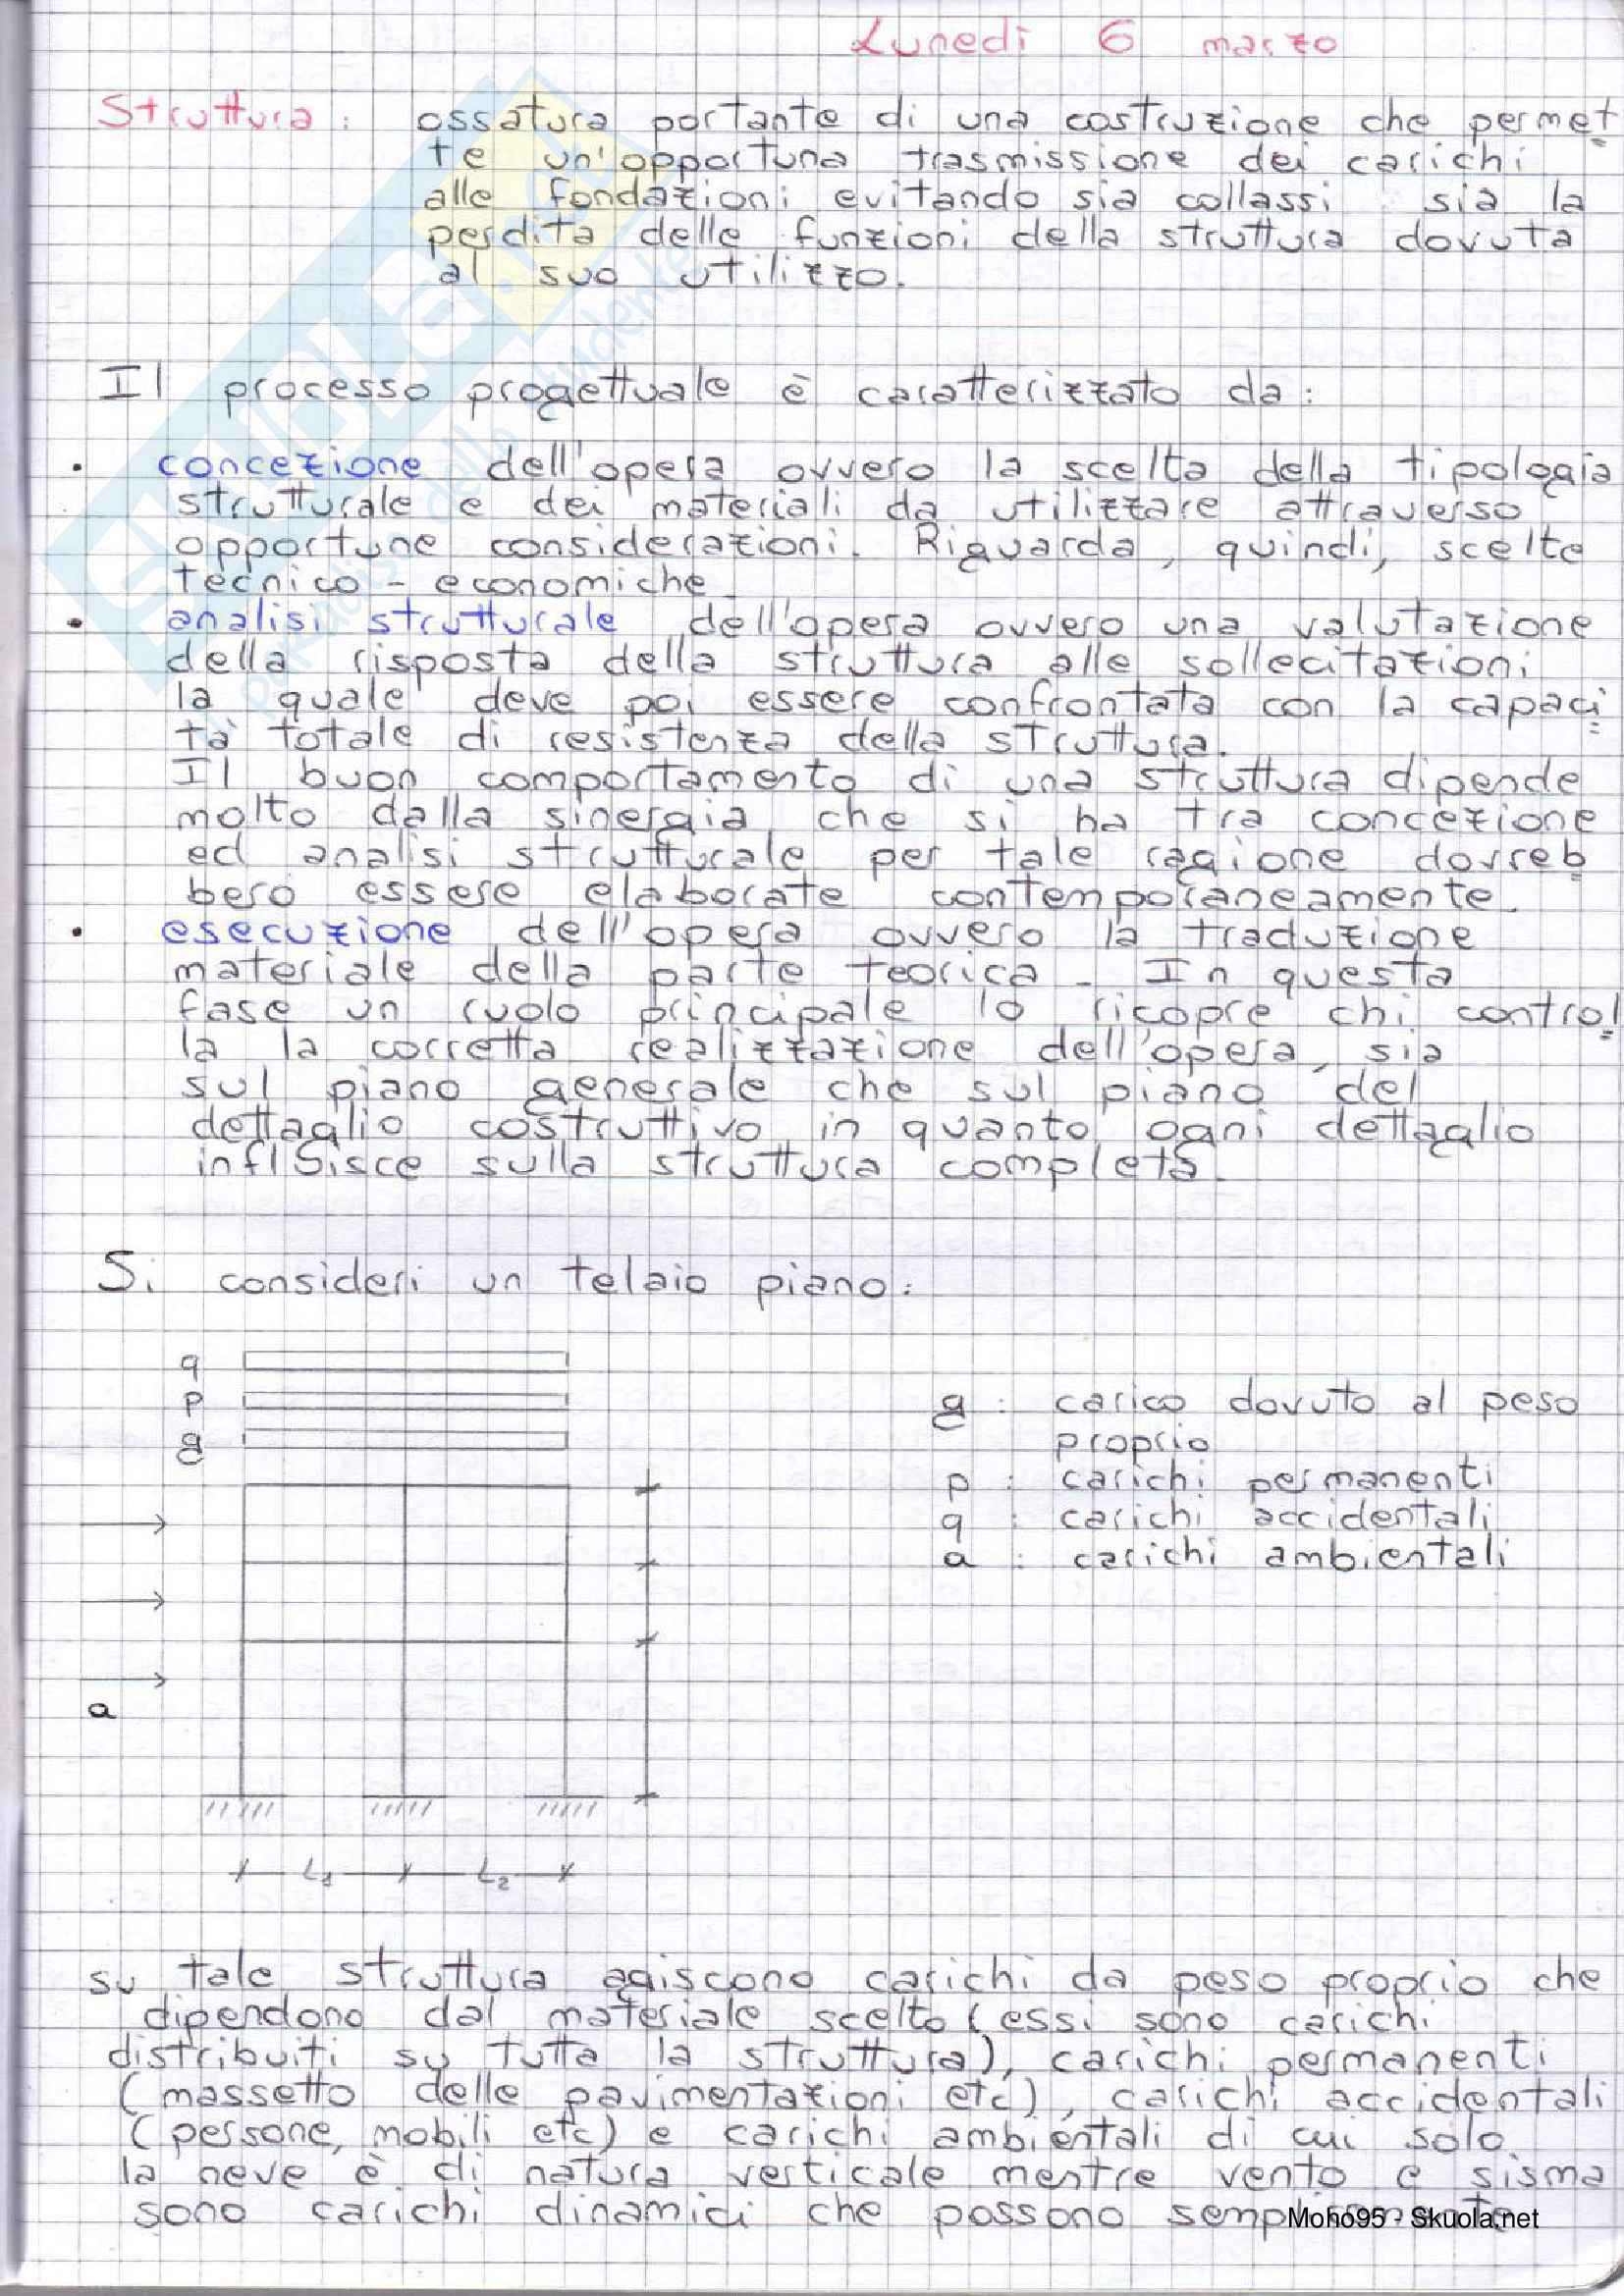 Lunedì 6 marzo
Struttura: ossatura portante di una costruzione che permet
te un'opportuna trasmissione dei carichi
alle fondazioni evitando sia collassi sia la
perdita delle funzioni della struttura dovuta
al suo utilizzo.
Il processo progettuale è caratterizzato da:
• concezione dell'opera ovvero la scelta della tipologia
strutturale e dei materiali da utilizzare attraverso
opportune considerazioni. Riguarda, quindi, scelte
tecnico-economiche
• analisi strutturale dell'opera ovvero una valutazione
della risposta della struttura alle sollecitazioni
la quale deve poi essere confrontata con la capaci
tà totale di resistenza della struttura.
Il buon comportamento di una struttura dipende
molto dalla sinergia che si ha tra concezione
ed analisi strutturale per tale ragione dovreb
bero essere elaborate contemporaneamente.
• esecuzione dell'opera ovvero la traduzione
materiale della parte teorica. In questa
fase un ruolo principale lo ricopre chi control
la la corretta realizzazione dell'opera, sia
sul piano generale che sul piano del
dettaglio costruttivo in quanto ogni dettaglio
influisce sulla struttura completa.
Si consideri un telaio piano:
q
p
g
a
L1 L2
g : carico dovuto al peso
proprio
p : carichi permanenti
q : carichi accidentali
a : carichi ambientali
su tale struttura agiscono carichi da peso proprio che
dipendono dal materiale scelto (essi sono carichi
distribuiti su tutta la struttura), carichi permanenti
(massetto delle pavimentazioni etc), carichi accidentali
(persone, mobili etc) e carichi ambientali di cui solo
la neve è di natura verticale mentre vento e sisma
sono carichi dinamici che possono
Moho95 - Skuola.net